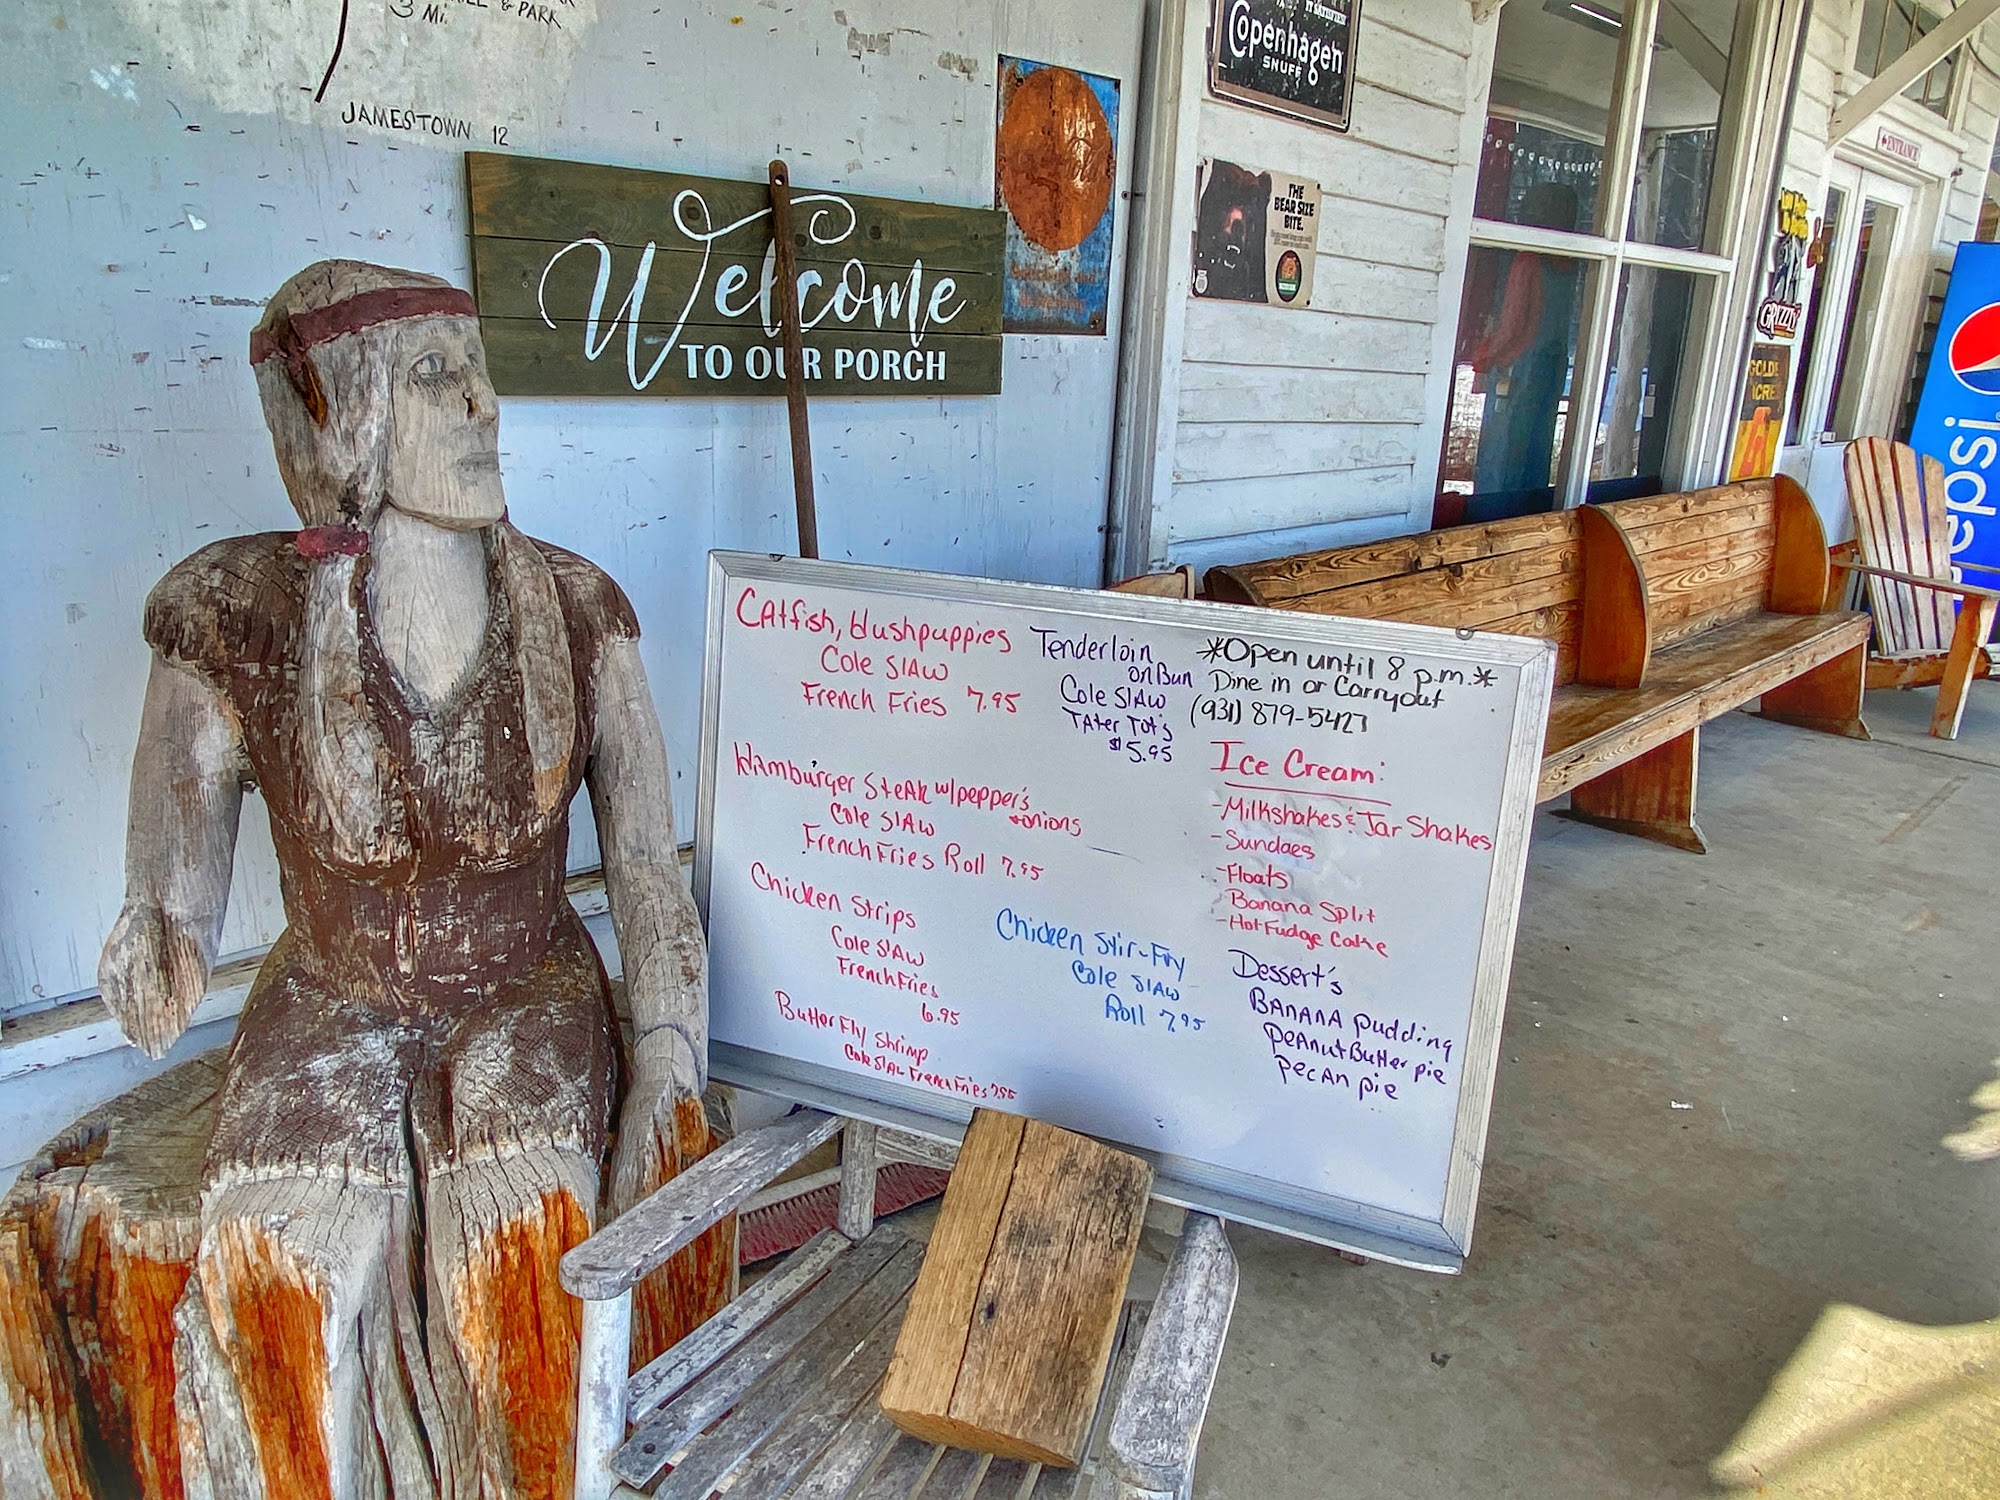 & PARK
3 Mi.
JAMESTOWN 12
Welcome
TO OUR PORCH
Copenhagen
SNUFF
THE
BEAR SIZE
BITE.
ENTRANCE
GRIZZLY
pepsi
CAtfish, Hushpuppies
Cole SlAw
French Fries 7.95
Hamburger SteAk w/pepper's
+onions
Cole SlAw
French Fries Roll 7.95
Chicken Strips
Cole SlAw
French Fries
6.95
ButterFly Shrimp
Cole SlAw French Fries 7.95
Tenderloin
on Bun
Cole SlAw
TAter Tot's
$5.95
Chicken Stir-Fry
Cole SlAw
Roll 7.95
*Open until 8 p.m.*
Dine in or Carryout
(931) 879-5427
Ice Cream:
-Milkshakes & Jar Shakes
-Sundaes
-Floats
-Banana Split
-Hot Fudge Cake
Dessert's
BANANA pudding
PeAnut Butter pie
PecAn pie